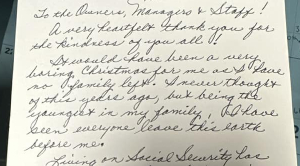 To the Owners, Managers & Staff!
A very heartfelt thank you for
the kindness of you all!!
It would have been a very
boring Christmas for me as I have
no family left. I never thought
of this years ago, but being the
youngest in my family, I have
seen everyone leave this earth
before me.
Living on Social Security has